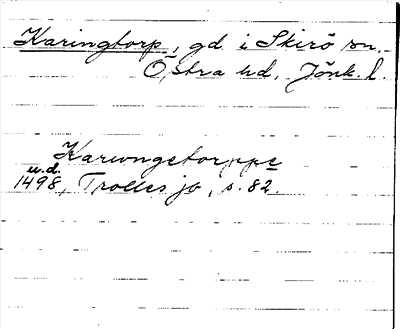 Karingtorp, gd i Skirö sn.
Östra hd, Jönk. l.
Kariongetorppe
u.d.
1498, Trolles jb, s. 82.